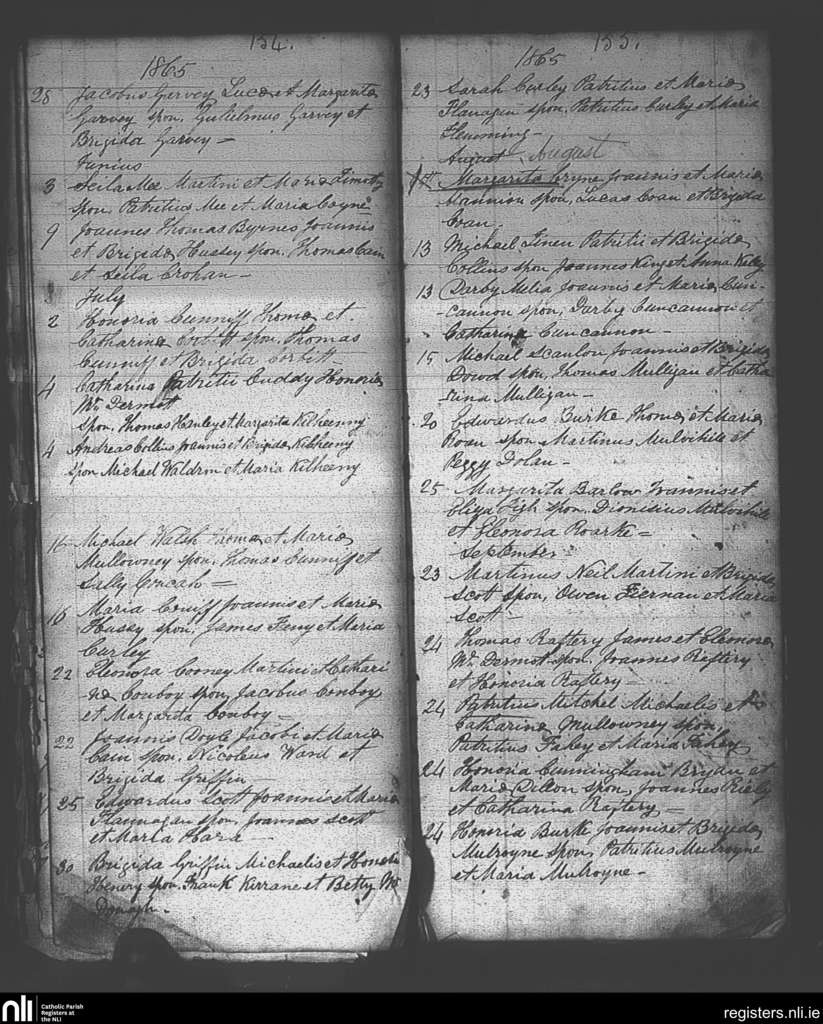 154.
1865
28 Jacobus Garvey Lucæ et Margarita
Garvey spon. Gulielmus Garvey et
Brigida Garvey —
Junius
3 Seila Mee Martini et Maria Timothy
spon. Patritius Mee et Maria Coyne
9 Joannes Thomas Byrnes Joannis
et Brigida Hussey spon. Thomas Cain
et Seila Crohan —
July
2 Honoria Cunniff Thoma et
Catharina Corbitt spon. Thomas
Cunniff et Brigida Corbitt
4 Catharina Patritii Cuddy Honoria
Mc Dermot
spon. Thomas Hanley et Margarita Kilheenny
4 Andreas Collins Joannis et Brigida Kilheeny
spon Michael Waldron et Maria Kilheeny
16 Michael Walsh Thoma et Maria
Mullowney spon. Thomas Cunniff et
Sally
16 Maria Cuniff Joannis et Maria
Husey spon. James Feny et Maria
Curley
22 Eleonora Cooney Martini et Cathari
na Conboy spon, Jacobus Conboy
et Margarita Conboy —
22 Joannis Doyle Jacobi et Maria
Cain spon. Nicolaus Ward et
Brigida Griffin —
25 Edwardus Scott Joannis et Maria
Flannagan spon, Joannes Scott
et Maria Hara —
30 Brigida Griffin Michaelis et Honoria
Henery spon. Frank Kirrane et Betty Mc
Donagh.
155.
1865
23 Sarah Curley Patritius et Maria
Flanagan spon. Patritius Curley et Maria
Flemming —
August August
1st Margarita Cryne Joannis et Maria
Mannion spon, Lucas Coan et Brigida
Coan
13 Michael Finen Patritii et Brigida
Collins spon Joannes King et Anna Kelly
13 Darby Melia Joannis et Maria Cun-
-cannon spon, Darby Cuncannon et
Catharina Cuncannon —
15 Michael Scanlon Joannis et Brigida
Dowd spon, Thomas Mulligan et Catha
rina Mulligan —
20 Edwardus Burke Thoma et Maria
Roan spon Martinus Mulvihile et
Peggy Dolan —
25 Margarita Barlow Joannis et
Eliza Ligh spon. Dionisius Mulvihile
et Eleonora Roarke =
September —
23 Martinus Neil Martini et Brigida
Scot spon, Owen Fiernan et Maria
Scot —
24 Thomas Raftery James et Eleonora
Mc Dermot spon. Joannes Raftery
et Honoria Raftery —
24 Patritius Mitchel Michaelis et
Catharina Mullowney spon,
Patritius Fahey et Maria Fahey
24 Honoria Cunningham Brydn et
Maria Dillon spon, Joannes Riely
et Catharina Raftery —
24 Honoria Burke Joannis et Brigida
Mulroyne spon, Patritius Mulroyne
et Maria Mulroyne —
nli
Catholic Parish
Registers at
the NLI
registers.nli.ie